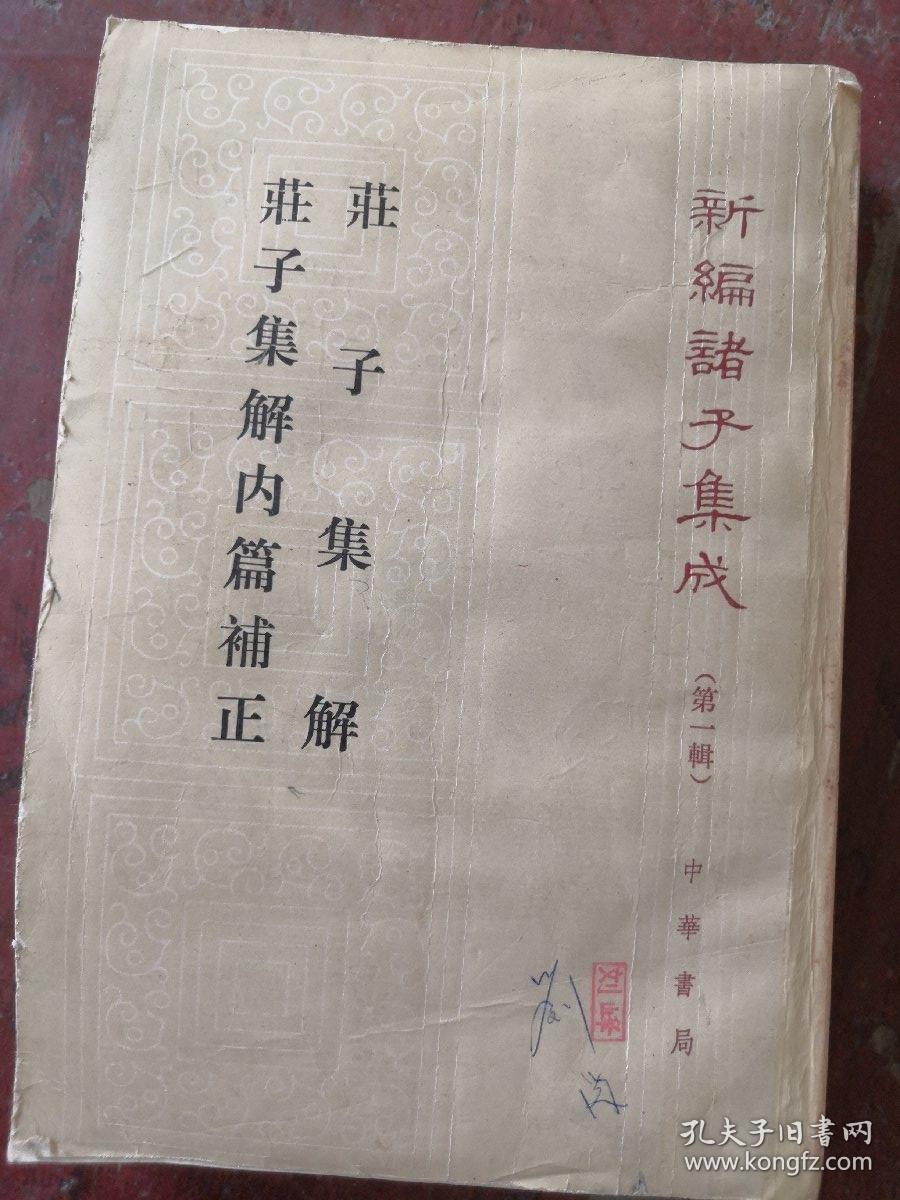 新編諸子集成
（第一輯）
中華書局
莊子集解
莊子集解内篇補正
孔夫子旧書网
www.kongfz.com